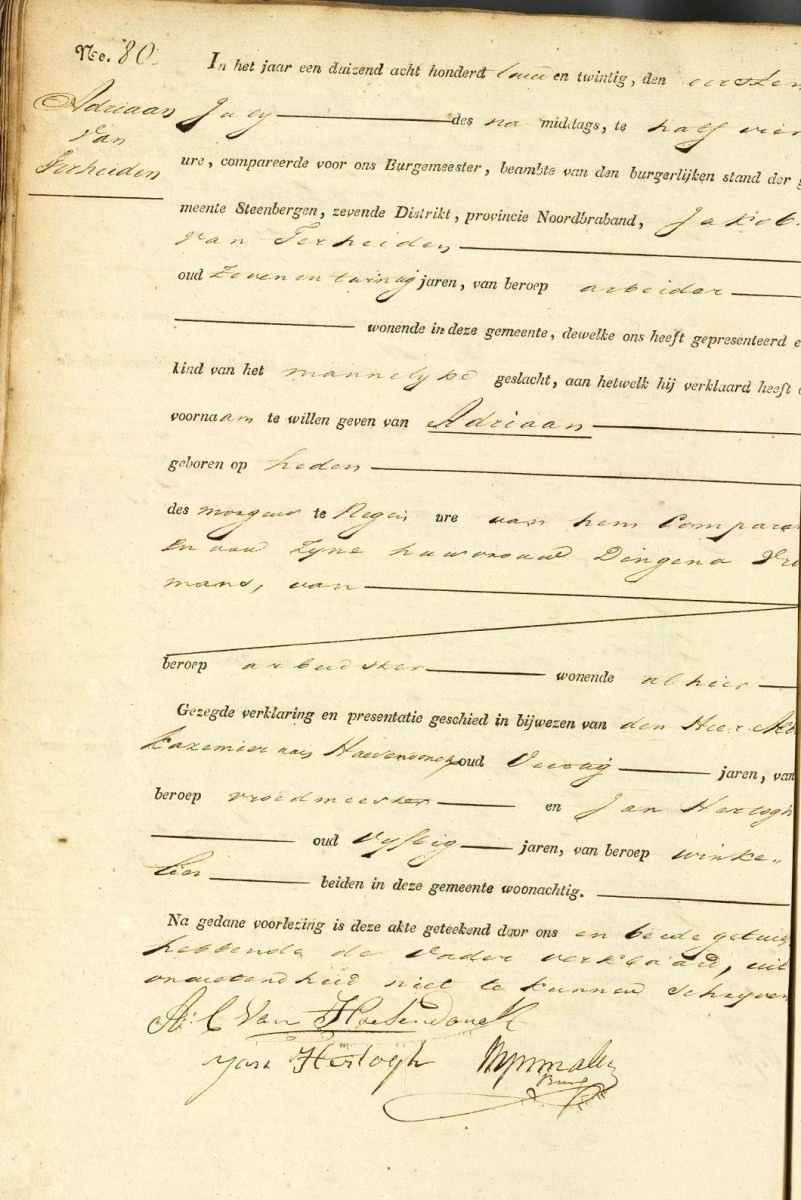 No. 80.
Adriaan
Van
Terheiden
In het jaar een duizend acht honderd twee en twintig, den eersten
July des na middags, te half vier
ure, compareerde voor ons Burgemeester, beambte van den burgerlijken stand der g
meente Steenbergen, zevende Distrikt, provincie Noordbraband, Jakob
van Terheiden
oud Zeven en twintig jaren, van beroep arbeider
wonende in deze gemeente, dewelke ons heeft gepresenteerd e
kind van het mannelyke geslacht, aan hetwelk hij verklaard heeft d
voornaam te willen geven van Adriaan
geboren op heden
des morgens te Negen ure van hem Compara
En van Zyne huwvrouw Dingena Vro
mans, van
beroep arbeidster wonende alhier
Gezegde verklaring en presentatie geschied in bijwezen van den Heer
Kazemier van Haesendonck oud Veertig jaren, van
beroep vroedmeester en Jan Hertogh
oud Vyftig jaren, van beroep winke„
lier beiden in deze gemeente woonachtig.
Na gedane voorlezing is deze akte geteekend door ons en beide getuig
hebbende de Vader verklaard, uit
onwetendheid niet te kunnen Schryven
A: C Van Haesendonck
Jan Hertogh
Burg